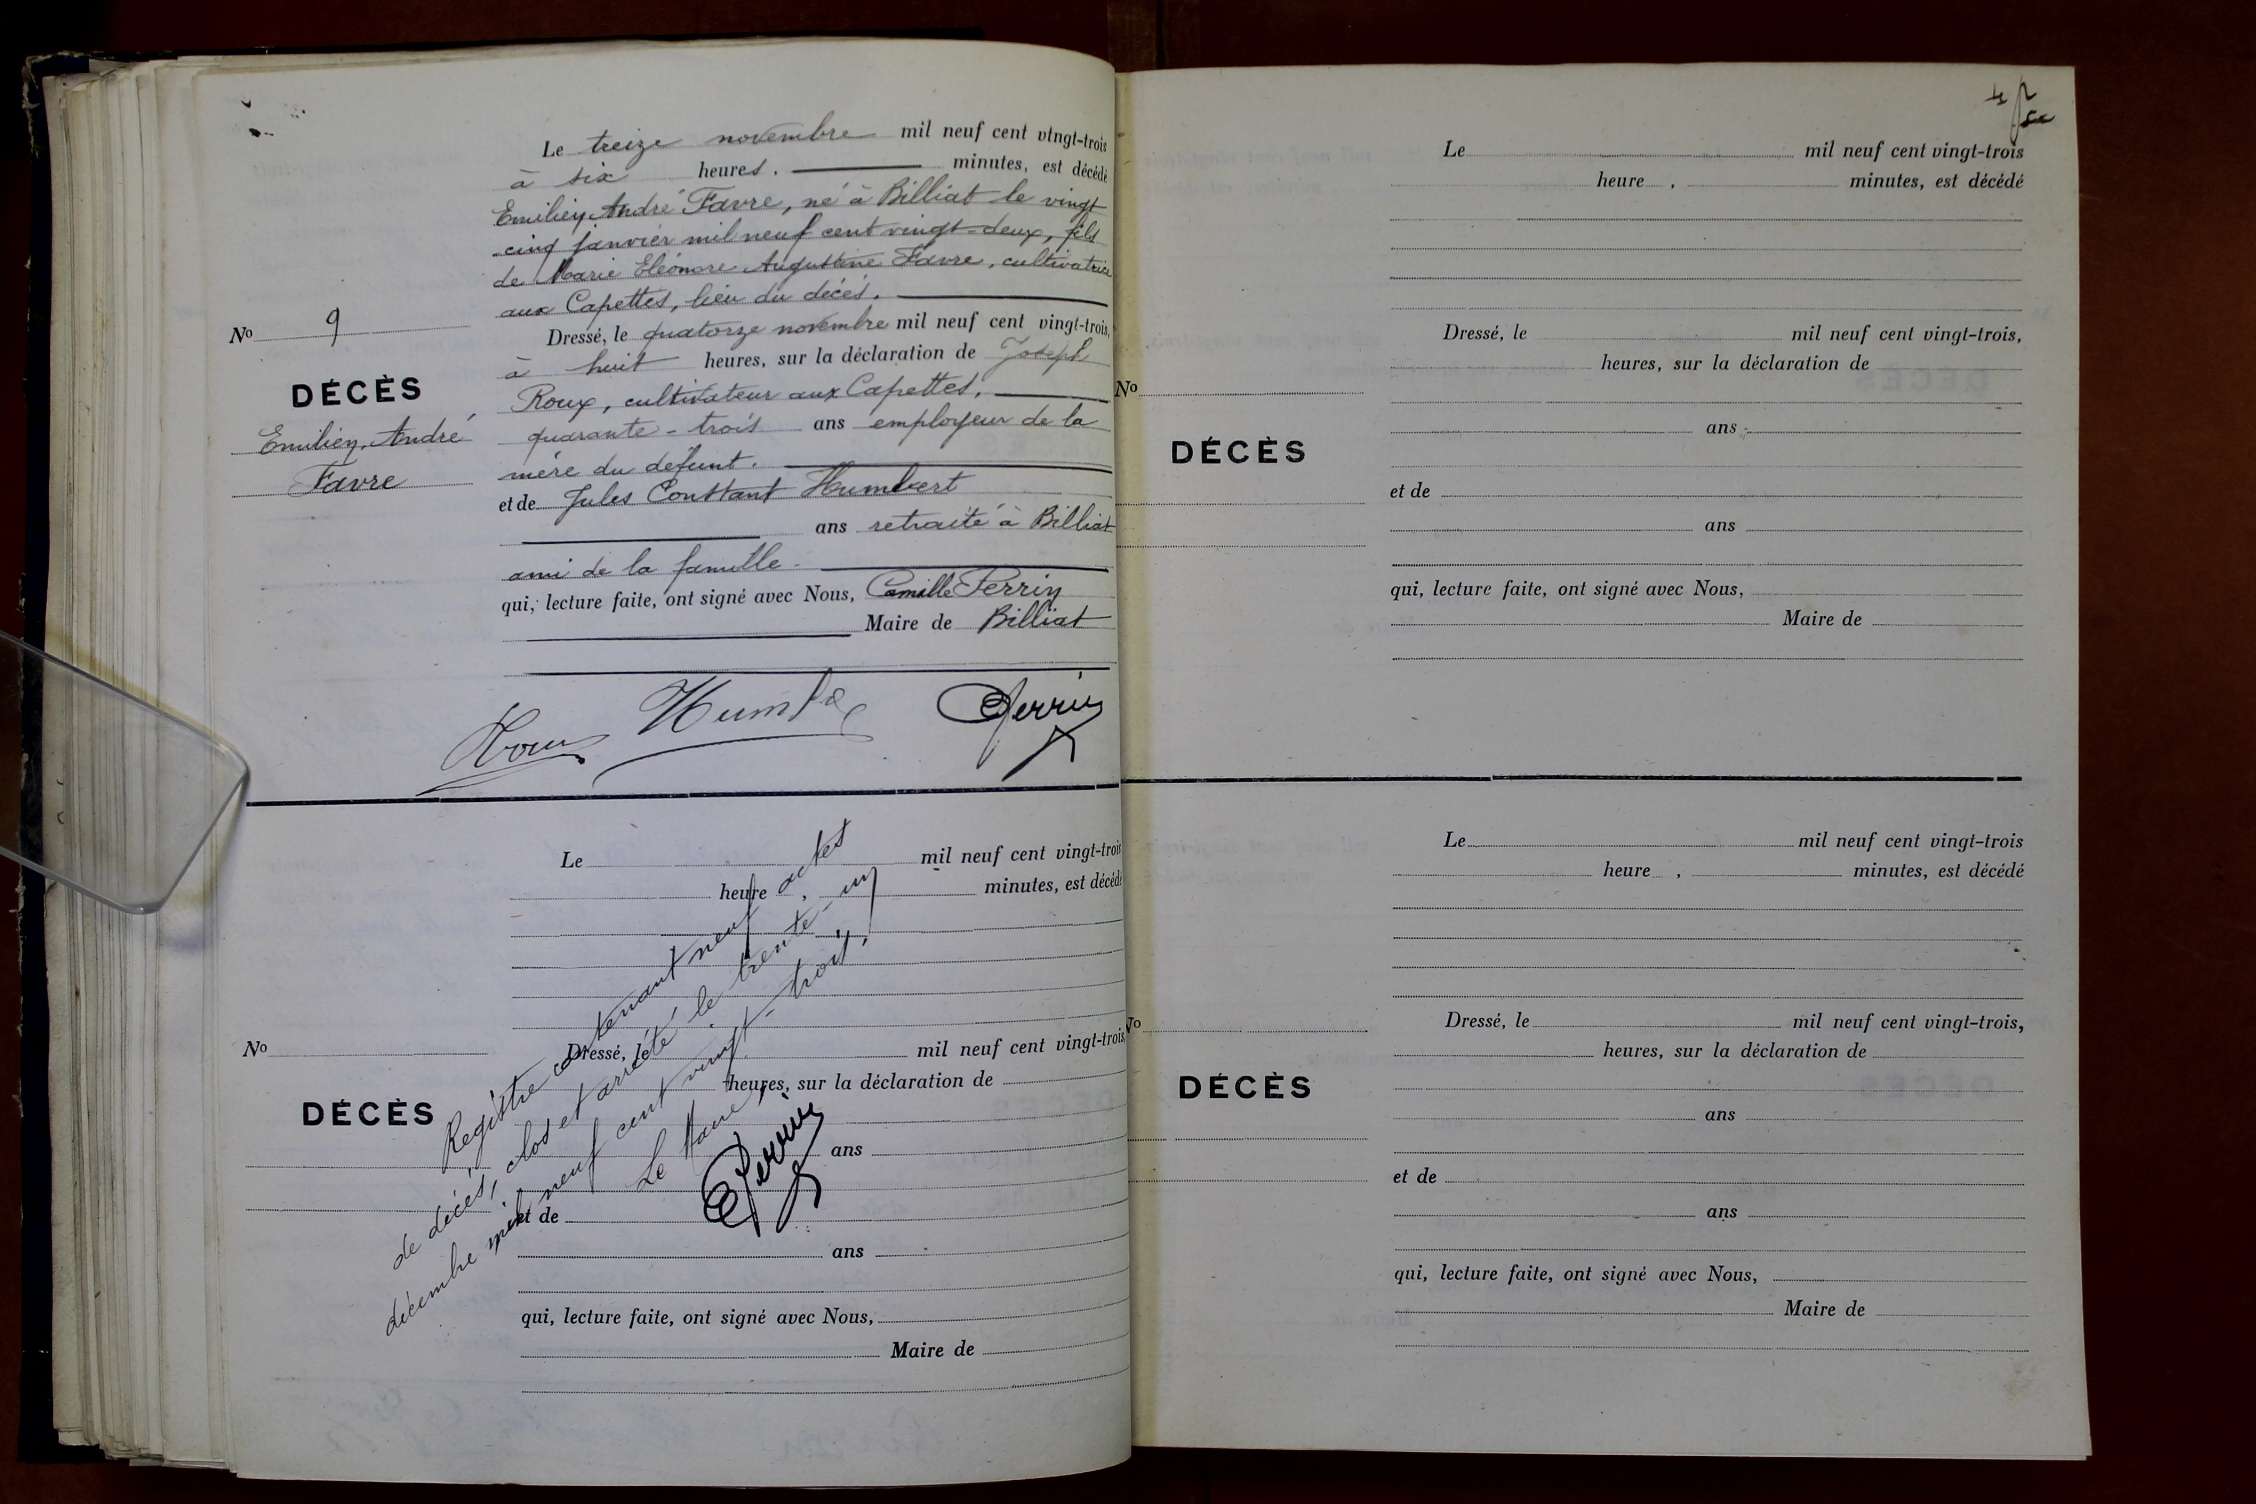 Le treize novembre mil neuf cent vingt-trois
à six heures. minutes, est décédé
Emilien André Favre, né à Billiat le vingt
cinq janvier mil neuf cent vingt-deux, fils
de Marie Eléonore Augustine Favre, cultivatrice
aux Capettes, lieu du décès.
No 9
DÉCÈS
Emilien André
Favre
Dressé, le quatorze novembre mil neuf cent vingt-trois,
à huit heures, sur la déclaration de Joseph
Roux, cultivateur aux Capettes,
quarante-trois ans employeur de la
mère du défunt.
et de Jules Constant Humbert
ans retraité à Billiat
ami de la famille.
qui, lecture faite, ont signé avec Nous, Camille Perrin
Maire de Billiat
Roux Humbe Perrin
Le mil neuf cent vingt-trois
heure , minutes, est décédé
No
DÉCÈS
Dressé, le mil neuf cent vingt-trois,
heures, sur la déclaration de
ans
et de
ans
qui, lecture faite, ont signé avec Nous,
Maire de
Registre contenant neuf actes
de décès, clos et arrêté le trente-un
décembre mil neuf cent vingt-trois.
Le Maire,
Perrin
Le mil neuf cent vingt-trois
heure , minutes, est décédé
No
DÉCÈS
Dressé, le mil neuf cent vingt-trois,
heures, sur la déclaration de
ans
et de
ans
qui, lecture faite, ont signé avec Nous,
Maire de
Le mil neuf cent vingt-trois
heure , minutes, est décédé
No
DÉCÈS
Dressé, le mil neuf cent vingt-trois,
heures, sur la déclaration de
ans
et de
ans
qui, lecture faite, ont signé avec Nous,
Maire de